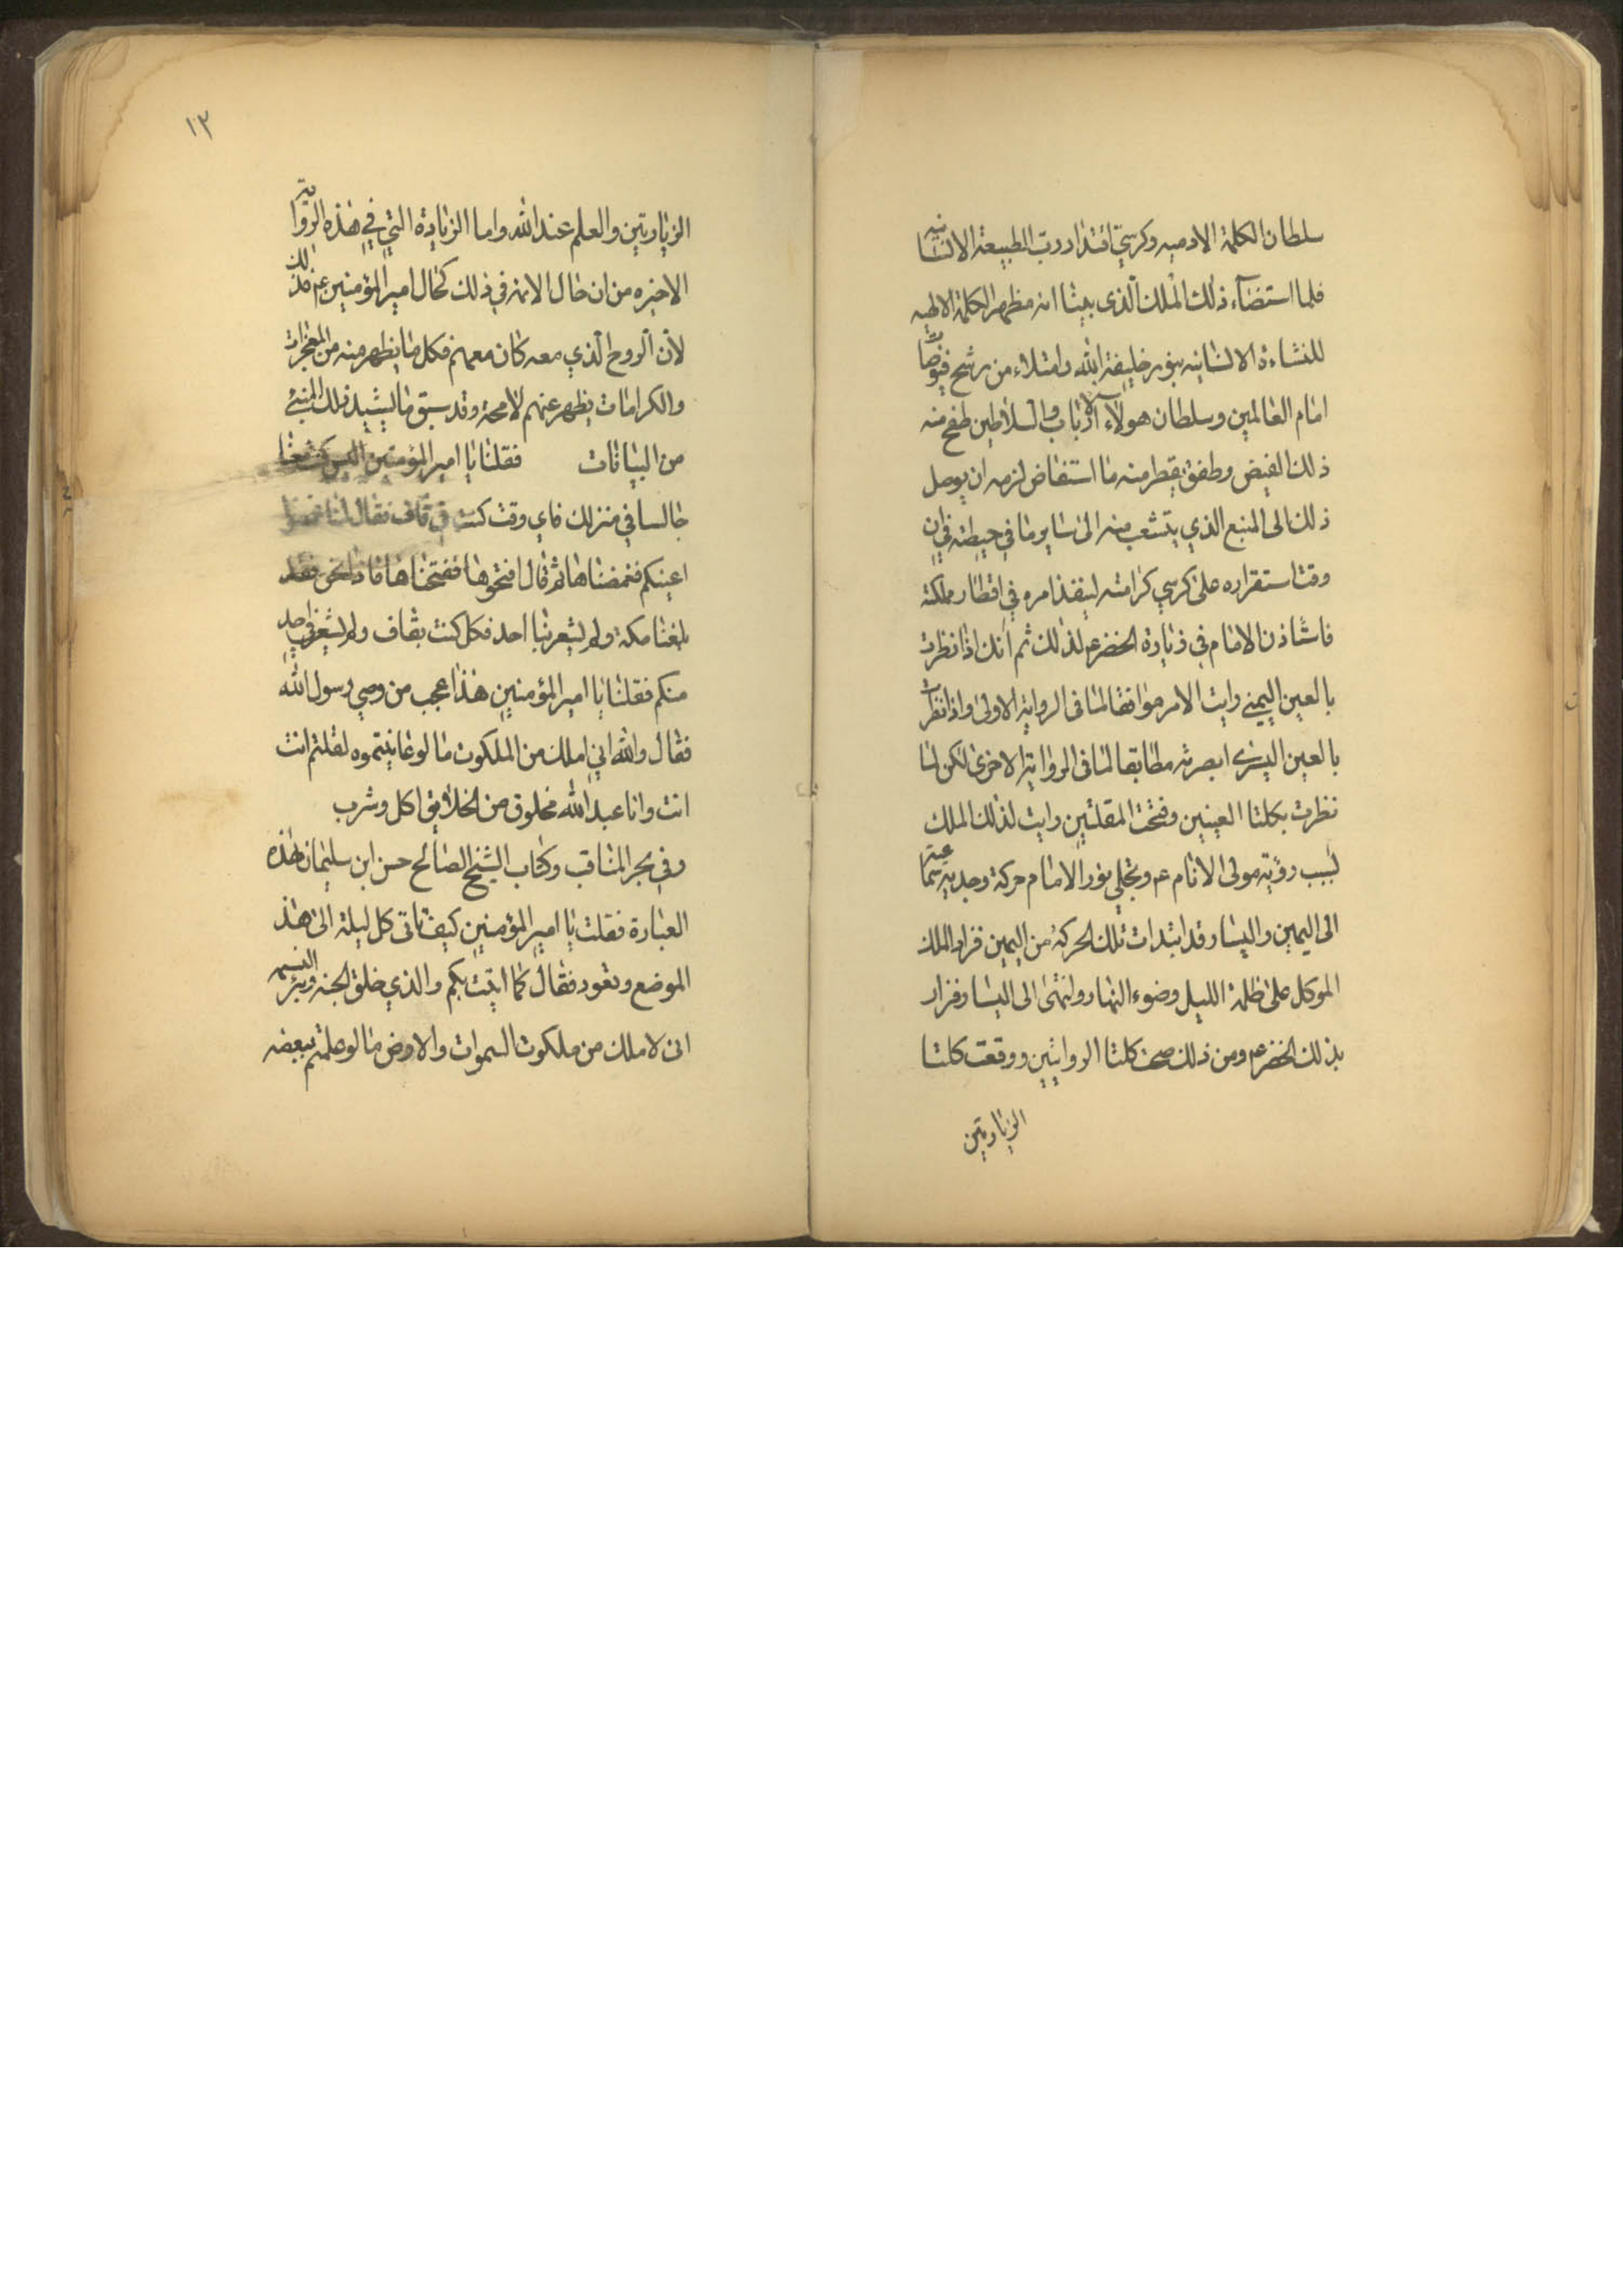 سلطان الكلمة الادميه وكرسيّ اقتدار ربّ الطبيعة الانسانيه
فلما استضآء ذلك الملك الّذى بيّنا انه مظهر الكلمة الالهيه
للنشاءة الانسانيه بنور خليفة الله وامتلاء من رشح فيوضات
امام العالمين وسلطان هولآء الارباب والسلاطين طفح منه
ذلك الفيض وطفق يقطر منه ما استفاض لزمه ان يوصل
ذلك الى المنبع الذي يتشعب منه الى ساير ما في حيطته في ان
وقت استقراره على كرسي كرامته لينفذ امره في اقطار مملكته
فاستاذن الامام في زيارة الخضر ع لذلك ثم انك اذا نظرت
بالعين اليمنى رايت الامر موافقا لما فى الرواية الاولى واذا نظرت
بالعين اليسرى ابصرته مطابقا لما فى الرواية الاخرى لكن لما
نظرت بكلتا العينين وفتحت المقلتين رايت لذلك الملك
بسبب رؤية مولى الانام ع وتجلي نور الامام حركة وجديه
الى اليمين واليسار قد ابتدات تلك الحركة من اليمين فزار الملك
الموكل على ظلمة الليل وضوء النهار وانتهى الى اليسار فزار
بذلك الخضر ع ومن ذلك صحت كلتا الروايتين ووقعت كلتا
الزيارتين
١٣
الزيارتين والعلم عند الله واما الزيادة التي في هذه الرواية
الاخيره من ان حال الائمه في ذلك كحال امير المؤمنين ع فذلك
لأن الروح الّذي معه كان معهم فكل ما يظهر منه من المعجزات
والكرامات يظهر عنهم لا محة وقد سبق ما يشيد ذلك المبنى
من البيانات فقلنا يا امير المؤمنين اليس كنت معنا
جالسا في منزلك فاي وقت كنت في قاف فقال لنا غمضوا
اعينكم فغمضناها ثم قال افتحوها ففتحناها فاذا نحن فقد
بلغنا مكة ولم يشعر بنا احد فكل كنت بقاف ولم يشعر بي احد
منكم فقلنا يا امير المؤمنين هذا عجب من وصي رسول الله
فقال والله اني املك من الملكوت ما لو عاينتموه لقلتم انت
انت وانا عبد الله مخلوق من الخلايق اكل وشرب
وفي بحر المناقب وكتاب الشيخ الصالح حسن ابن سليمان هذه
العبارة فقلت يا امير المؤمنين كيف تاتى كل ليلة الى هذ
الموضع وتعود فقال كما اتيت بكم والذي خلق الجنه وبرئ النسيم
انى لاملك من ملكوت السموات والارض ما لو علمتم ببعضه